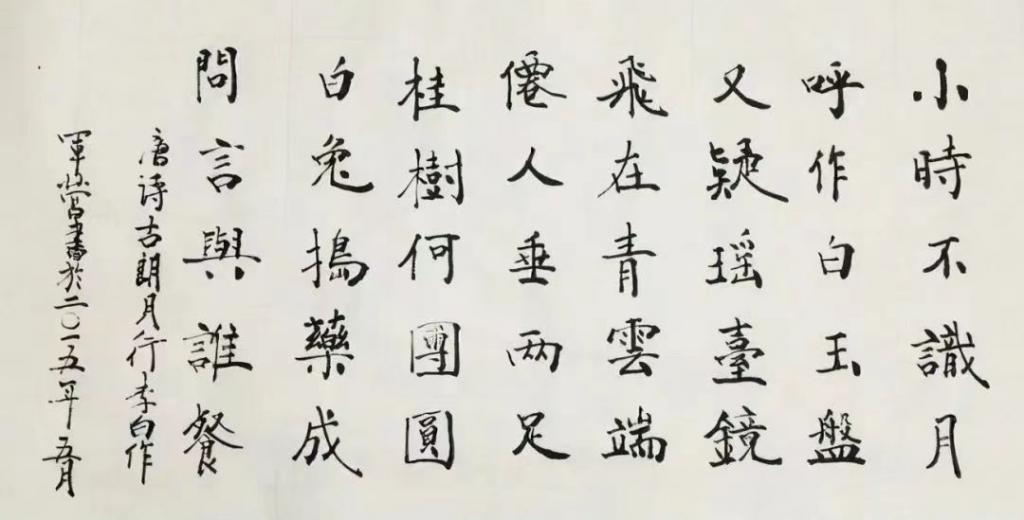 小時不識月
呼作白玉盤
又疑瑶臺鏡
飛在青雲端
僊人垂两足
桂樹何團圓
白兔搗藥成
問言與誰餐
唐詩古朗月行李白作
軍營書於二〇一五年五月